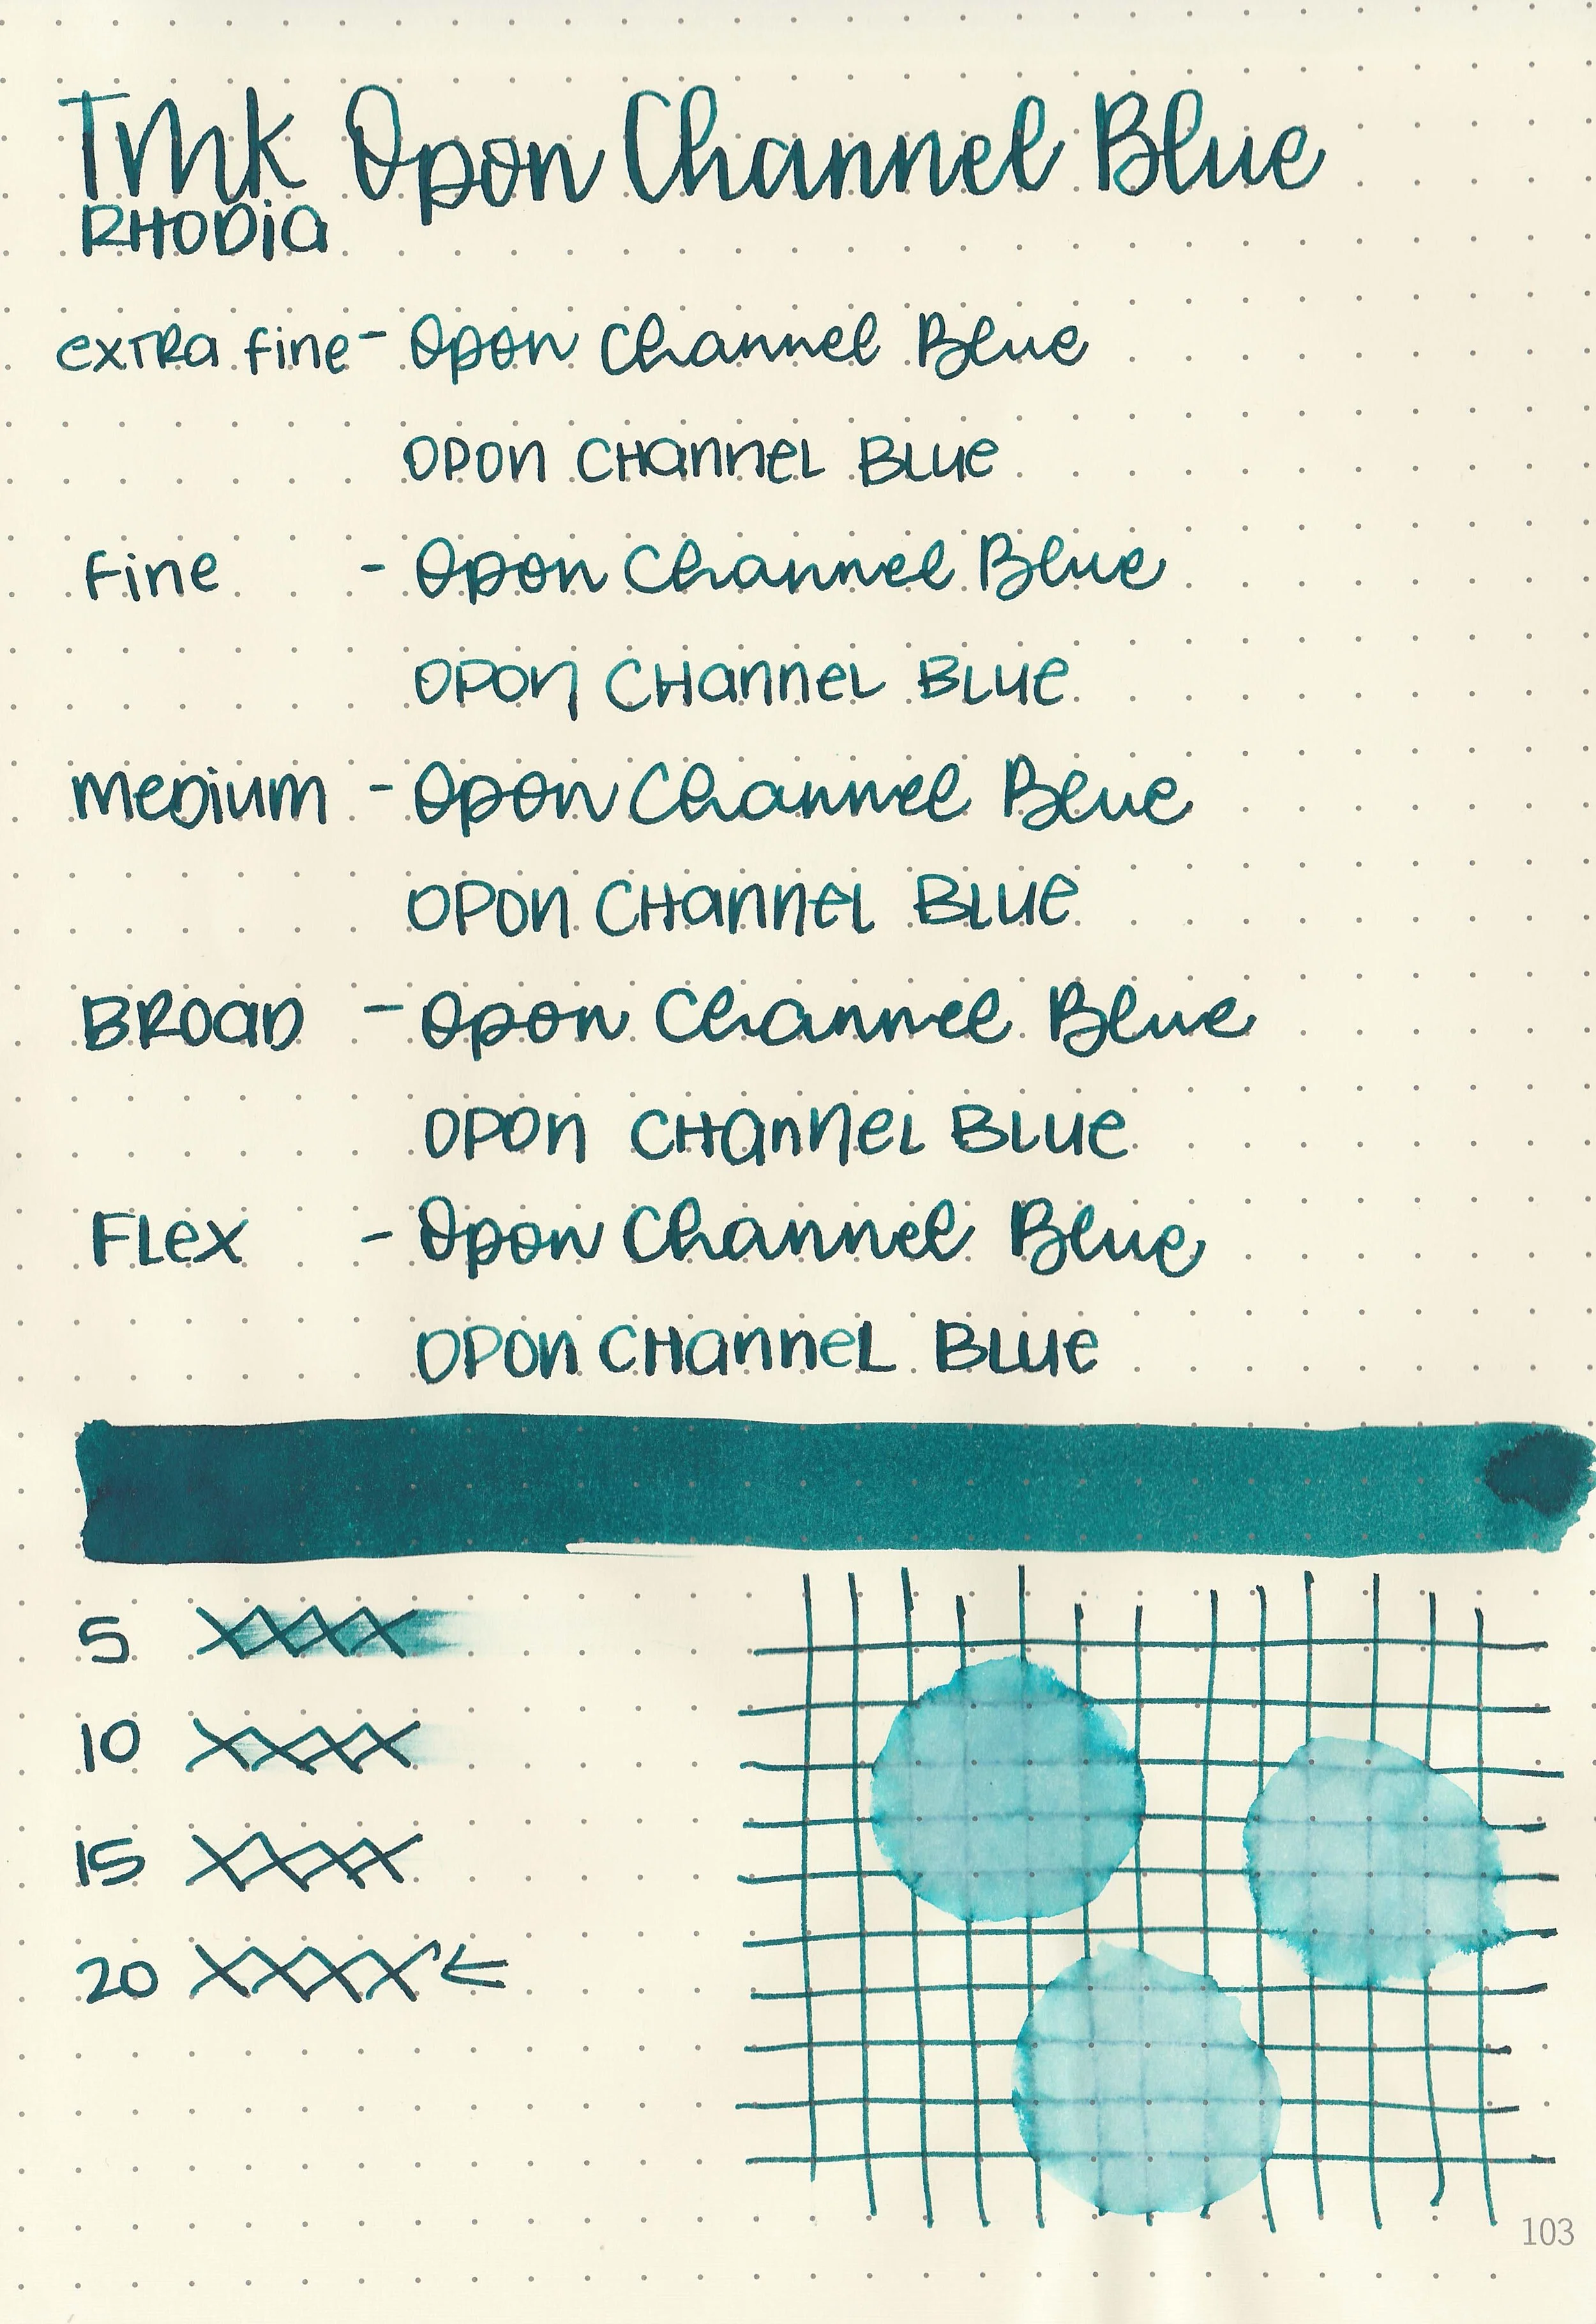 TMK Opon Channel Blue
RHODIA
extra fine - Opon Channel Blue
OPON CHANNEL BLUE
Fine - Opon Channel Blue
OPON CHANNEL BLUE
Medium - Opon Channel Blue
OPON CHANNEL BLUE
BROAD - Opon Channel Blue
OPON CHANNEL BLUE
FLEX - Opon Channel Blue
OPON CHANNEL BLUE
5 XXXX
10 XXXX
15 XXXX
20 XXXX ←
103